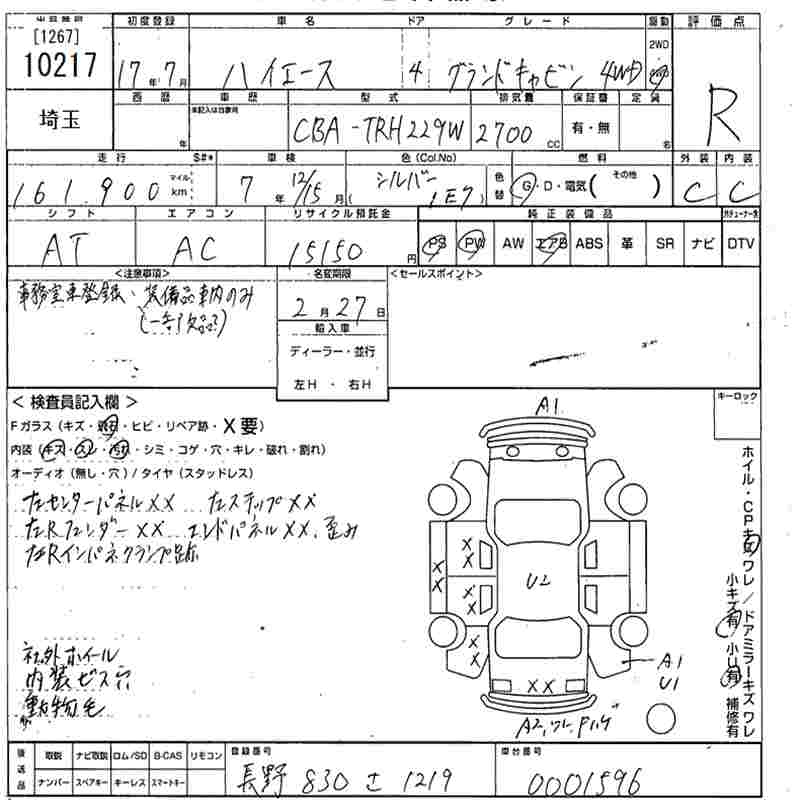 [1267]
10217
埼玉
初度登録 車名 ドア グレード 駆動 評価点
17年7月 ハイエース 4 グランドキャビン 4WD 2WD R
西暦 車歴 型式 排気量 保証書 定員
年 未記入は自家用 CBA-TRH229W 2700 CC 有・無 名
走行 S#* 車検 色(Col.No) 燃料 外装 内装
161,900 マイル km 7年 12/15月 シルバー (1E7) 色替 G・D・電気( その他 ) C C
シフト エアコン リサイクル預託金 純正装備品
AT AC 15150円 PS PW AW エアB ABS 革 SR ナビ DTV
<注意事項> 名変期限 <セールスポイント>
事務室車登録、装備品車内のみ 2月27日
(一部欠品?) 輸入車
ディーラー・並行
左H・右H
<検査員記入欄> キーロック
Fガラス(キズ・・ヒビ・リペア跡・X要) A1
内装(キズ・スレ・汚れ・シミ・コゲ・穴・キレ・破れ・割れ)
オーディオ(無し・穴)/タイヤ(スタッドレス)
左センターパネルXX 左ステップXX
左Rフェンダー XX エンドパネルXX、歪み
左Rインパネクランプ跡
XX
XX
XX
XX
U2
XX
A1
U1
A2,ワレ,Pハゲ
ホイル・CPキズワレ/ドアミラーキズワレ
小キズ有 小U有 補修有
社外ホイール
内装ビス穴
動物毛
後送品 取説 ナビ取説 ロム/SD B-CAS リモコン 登録番号 車台番号
ナンバー スペアキー キーレス スマートキー 長野 830 さ 1219 0001596